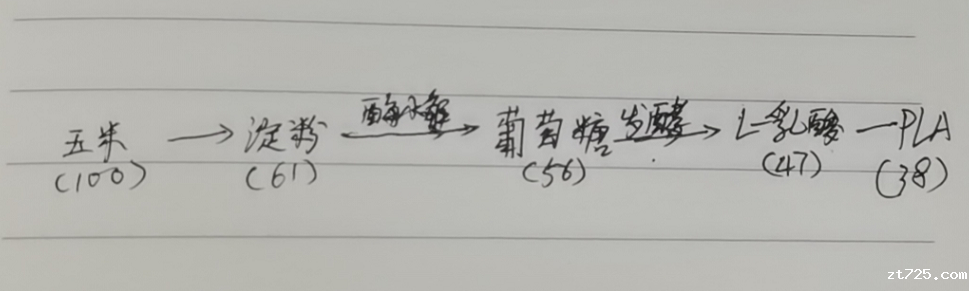 五米 → 淀粉 酶水解 → 葡萄糖 发酵 → L-乳酸 — PLA
(100) (61) (56) (47) (38)
zt725.com